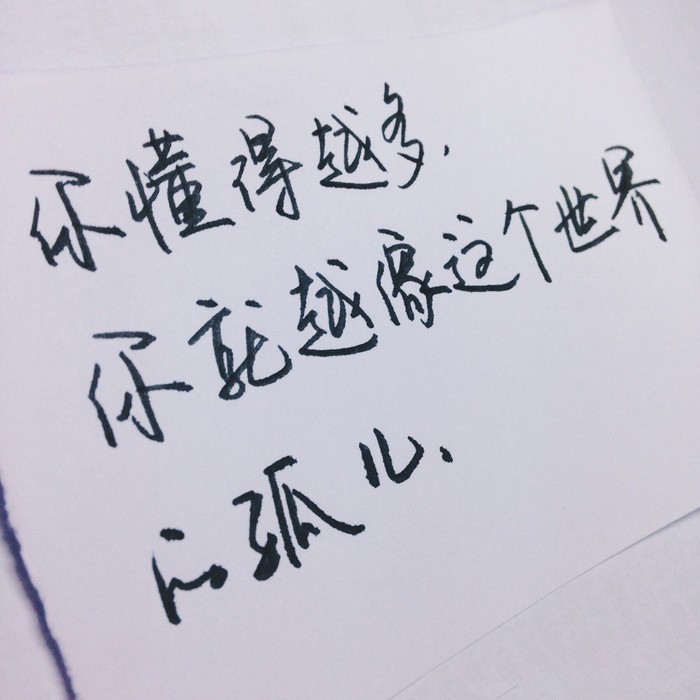 你懂得越多.
你就越像这个世界
的孤儿.